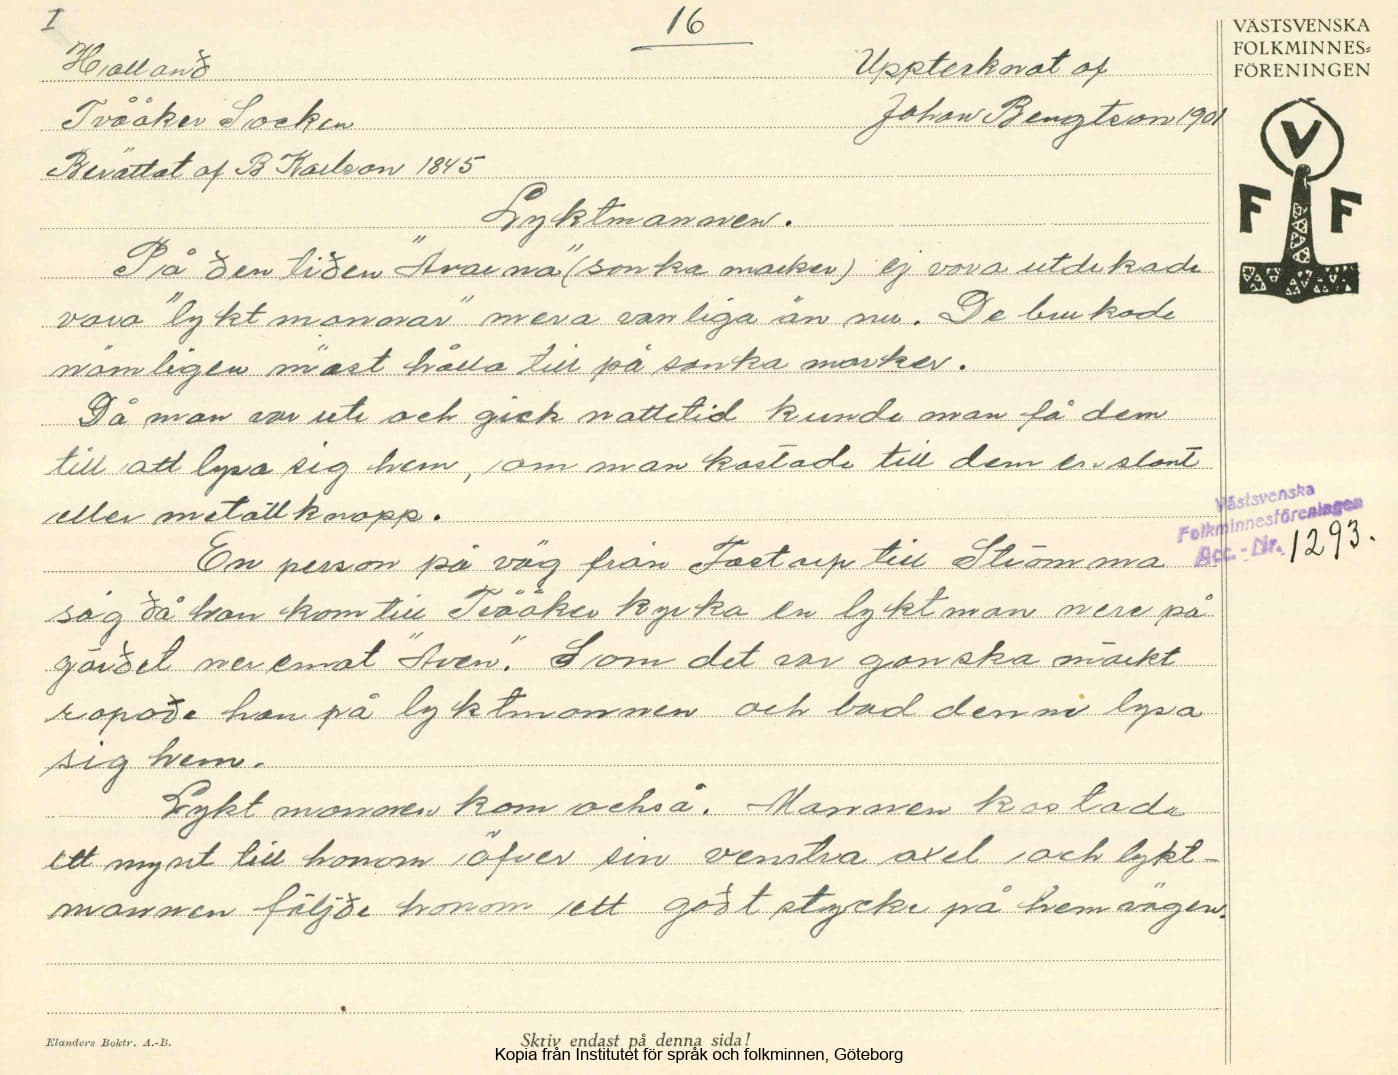 I
16
VÄSTSVENSKA
FOLKMINNES-
FÖRENINGEN
Halland
Uppteknat af
Tvååker Socken
Johan Bengtson 1901
Berättat af B Karlson 1845
V
F F
Lyktmannen.
På den tiden "Araena" (sanka marker) ej vora utdikade
voro "lyktmannar" mera vanliga än nu. De brukade
nämligen mäst hålla till på sanka marker.
Då man var ute och gick nattetid kunde man få dem
till att lysa sig hem, om man kastade till dem en slant
eller metallknapp.
Västsvenska
Folkminnesföreningen
Acc.-Nr. 1293.
En person på väg från Fastarp till Strömma
såg då han kom till Tvååker kyrka en lyktman nere på
gärdet neremot "Aven". Som det var ganska mörkt
ropade han på lyktmannen och bad denne lysa
sig hem.
Lyktmannen kom också. Mannen kastade
ett mynt till honom öfver sin venstra axel och lykt-
mannen följde honom ett godt stycke på hemvägen.
Elanders Boktr. A.-B.
Skriv endast på denna sida!
Kopia från Institutet för språk och folkminnen, Göteborg